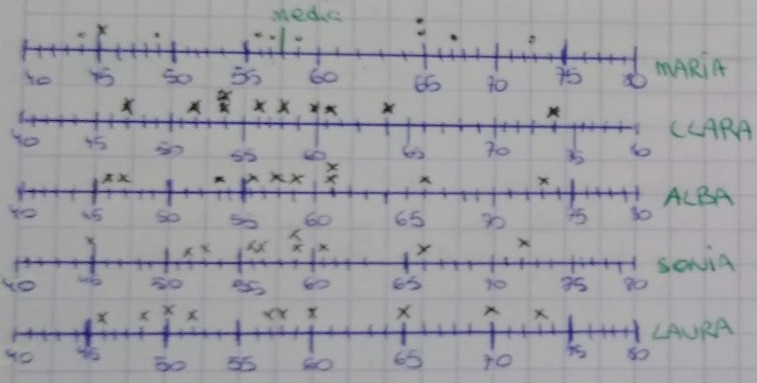 media
40 45 50 55 60 65 70 75 80 MARÍA
40 45 50 55 60 65 70 75 80 CLARA
40 45 50 55 60 65 70 75 80 ALBA
40 45 50 55 60 65 70 75 80 SONIA
40 45 50 55 60 65 70 75 80 LAURA